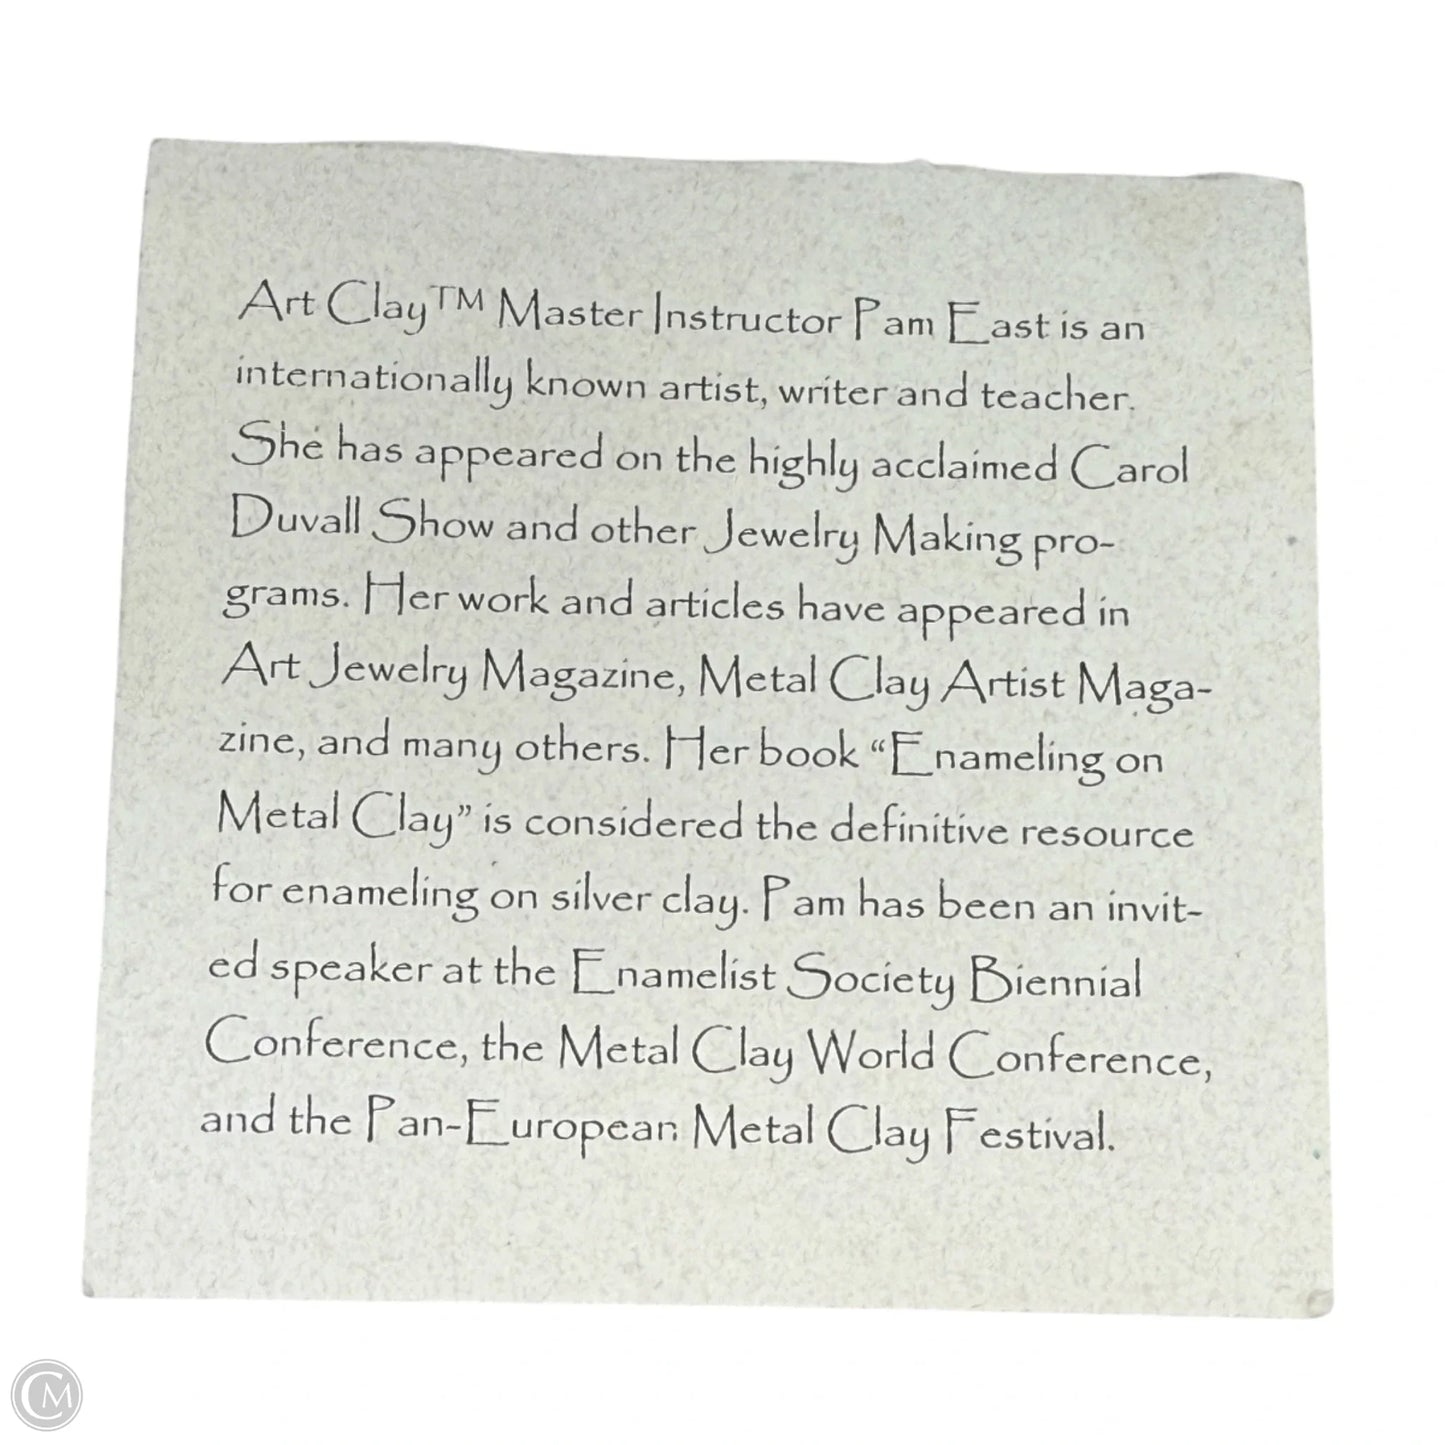 Art Clay™ Master Instructor Pam East is an
internationally known artist, writer and teacher.
She has appeared on the highly acclaimed Carol
Duvall Show and other Jewelry Making pro-
grams. Her work and articles have appeared in
Art Jewelry Magazine, Metal Clay Artist Maga-
zine, and many others. Her book “Enameling on
Metal Clay” is considered the definitive resource
for enameling on silver clay. Pam has been an invit-
ed speaker at the Enamelist Society Biennial
Conference, the Metal Clay World Conference,
and the Pan-European Metal Clay Festival.
CM